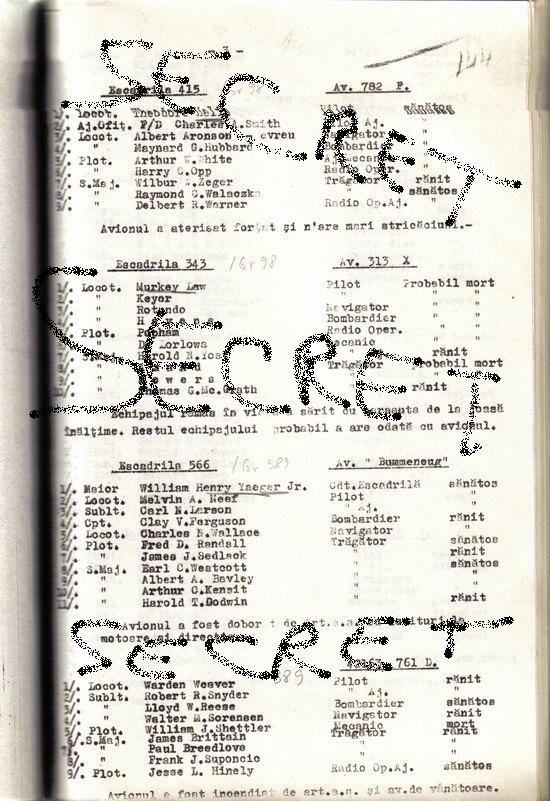 SECRET
Escadrila 415 Av. 782 F.
1/. Locot. Pilot sănătos
2/. Aj.Ofit. F/D Charles Smith Aj. "
3/. Locot. Albert Aronson evreu "
4/. " Maynard G.Hubbard Bombardier "
5/. Plot. Arthur W.White "
6/. " Harry C.Opp Radio Oper. "
7/. S.Maj. Wilbur W.Zeger Trăgător rănit
8/. " Raymond C.Walaczka " sănătos
9/. " Delbert R.Warner Radio Op.Aj. "
Avionul a aterisat forțat și n'are mari stricăciuni.-
Escadrila 343 /Gr 98 Av. 313 X
1/. Locot. Murkey Law Pilot Probabil mort
2/. " Keyor " "
3/. " Rotundo Navigator "
4/. " Bombardier "
5/. Plot. Radio Oper. "
6/. "
7/. Harold N. " rănit
8/. " Trăgător probabil mort
9/. " "
10/. " Thomas G.Mc.Grath " rănit
SECRET
Echipajul rămas în sărit cu de la joasă
înălțime. Restul echipajului probabil a ars odată cu avionul.
Escadrila 566 /Gr 389 Av. " Bummeneug"
1/. Maior William Henry Yaeger Jr. Cdt.Escadrilă sănătos
2/. Locot. Melvin A. Neef Pilot "
3/. Sublt. Carl N.Larson " Aj. "
4/. Cpt. Clay V.Ferguson Bombardier rănit
5/. Locot. Charles R.Wallace Navigator "
6/. Plot. Fred D. Randall Trăgător sănătos
7/. " James J.Sedlack " rănit
8/. S.Maj. Earl C.Westcott " sănătos
9/. " Albert A. Bavley " "
10/. " Arthur C.Kensit " "
11/. " Harold T.Godwin " rănit
Avionul a fost doborât de art.a.a.
motoare și
SECRET
389 761 D.
1/. Locot. Warden Weaver Pilot rănit
2/. Sublt. Robert R.Snyder " Aj. "
3/. " Lloyd W.Reese Bombardier sănătos
4/. " Walter M.Sorensen Navigator rănit
5/. Plot. William J.Shettler Mecanic mort
6/. S.Maj. James Brittain Trăgător rănit
7/. " Paul Breedlove " "
8/. " Frank J.Suponcic " "
9/. Plot. Jesse L. Hinely Radio Op.Aj. sănătos
Avionul a fost incendiat de art.a.a. și av.de vânătoare.